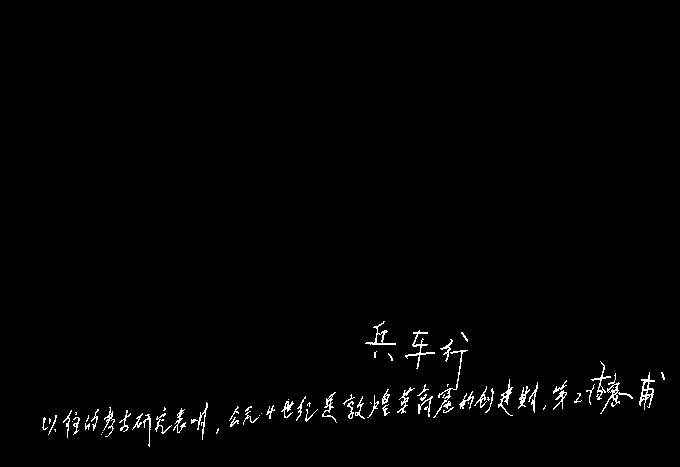 兵车行
以往的考古研究表明,公元4世纪是敦煌莫高窟的创建期,第2